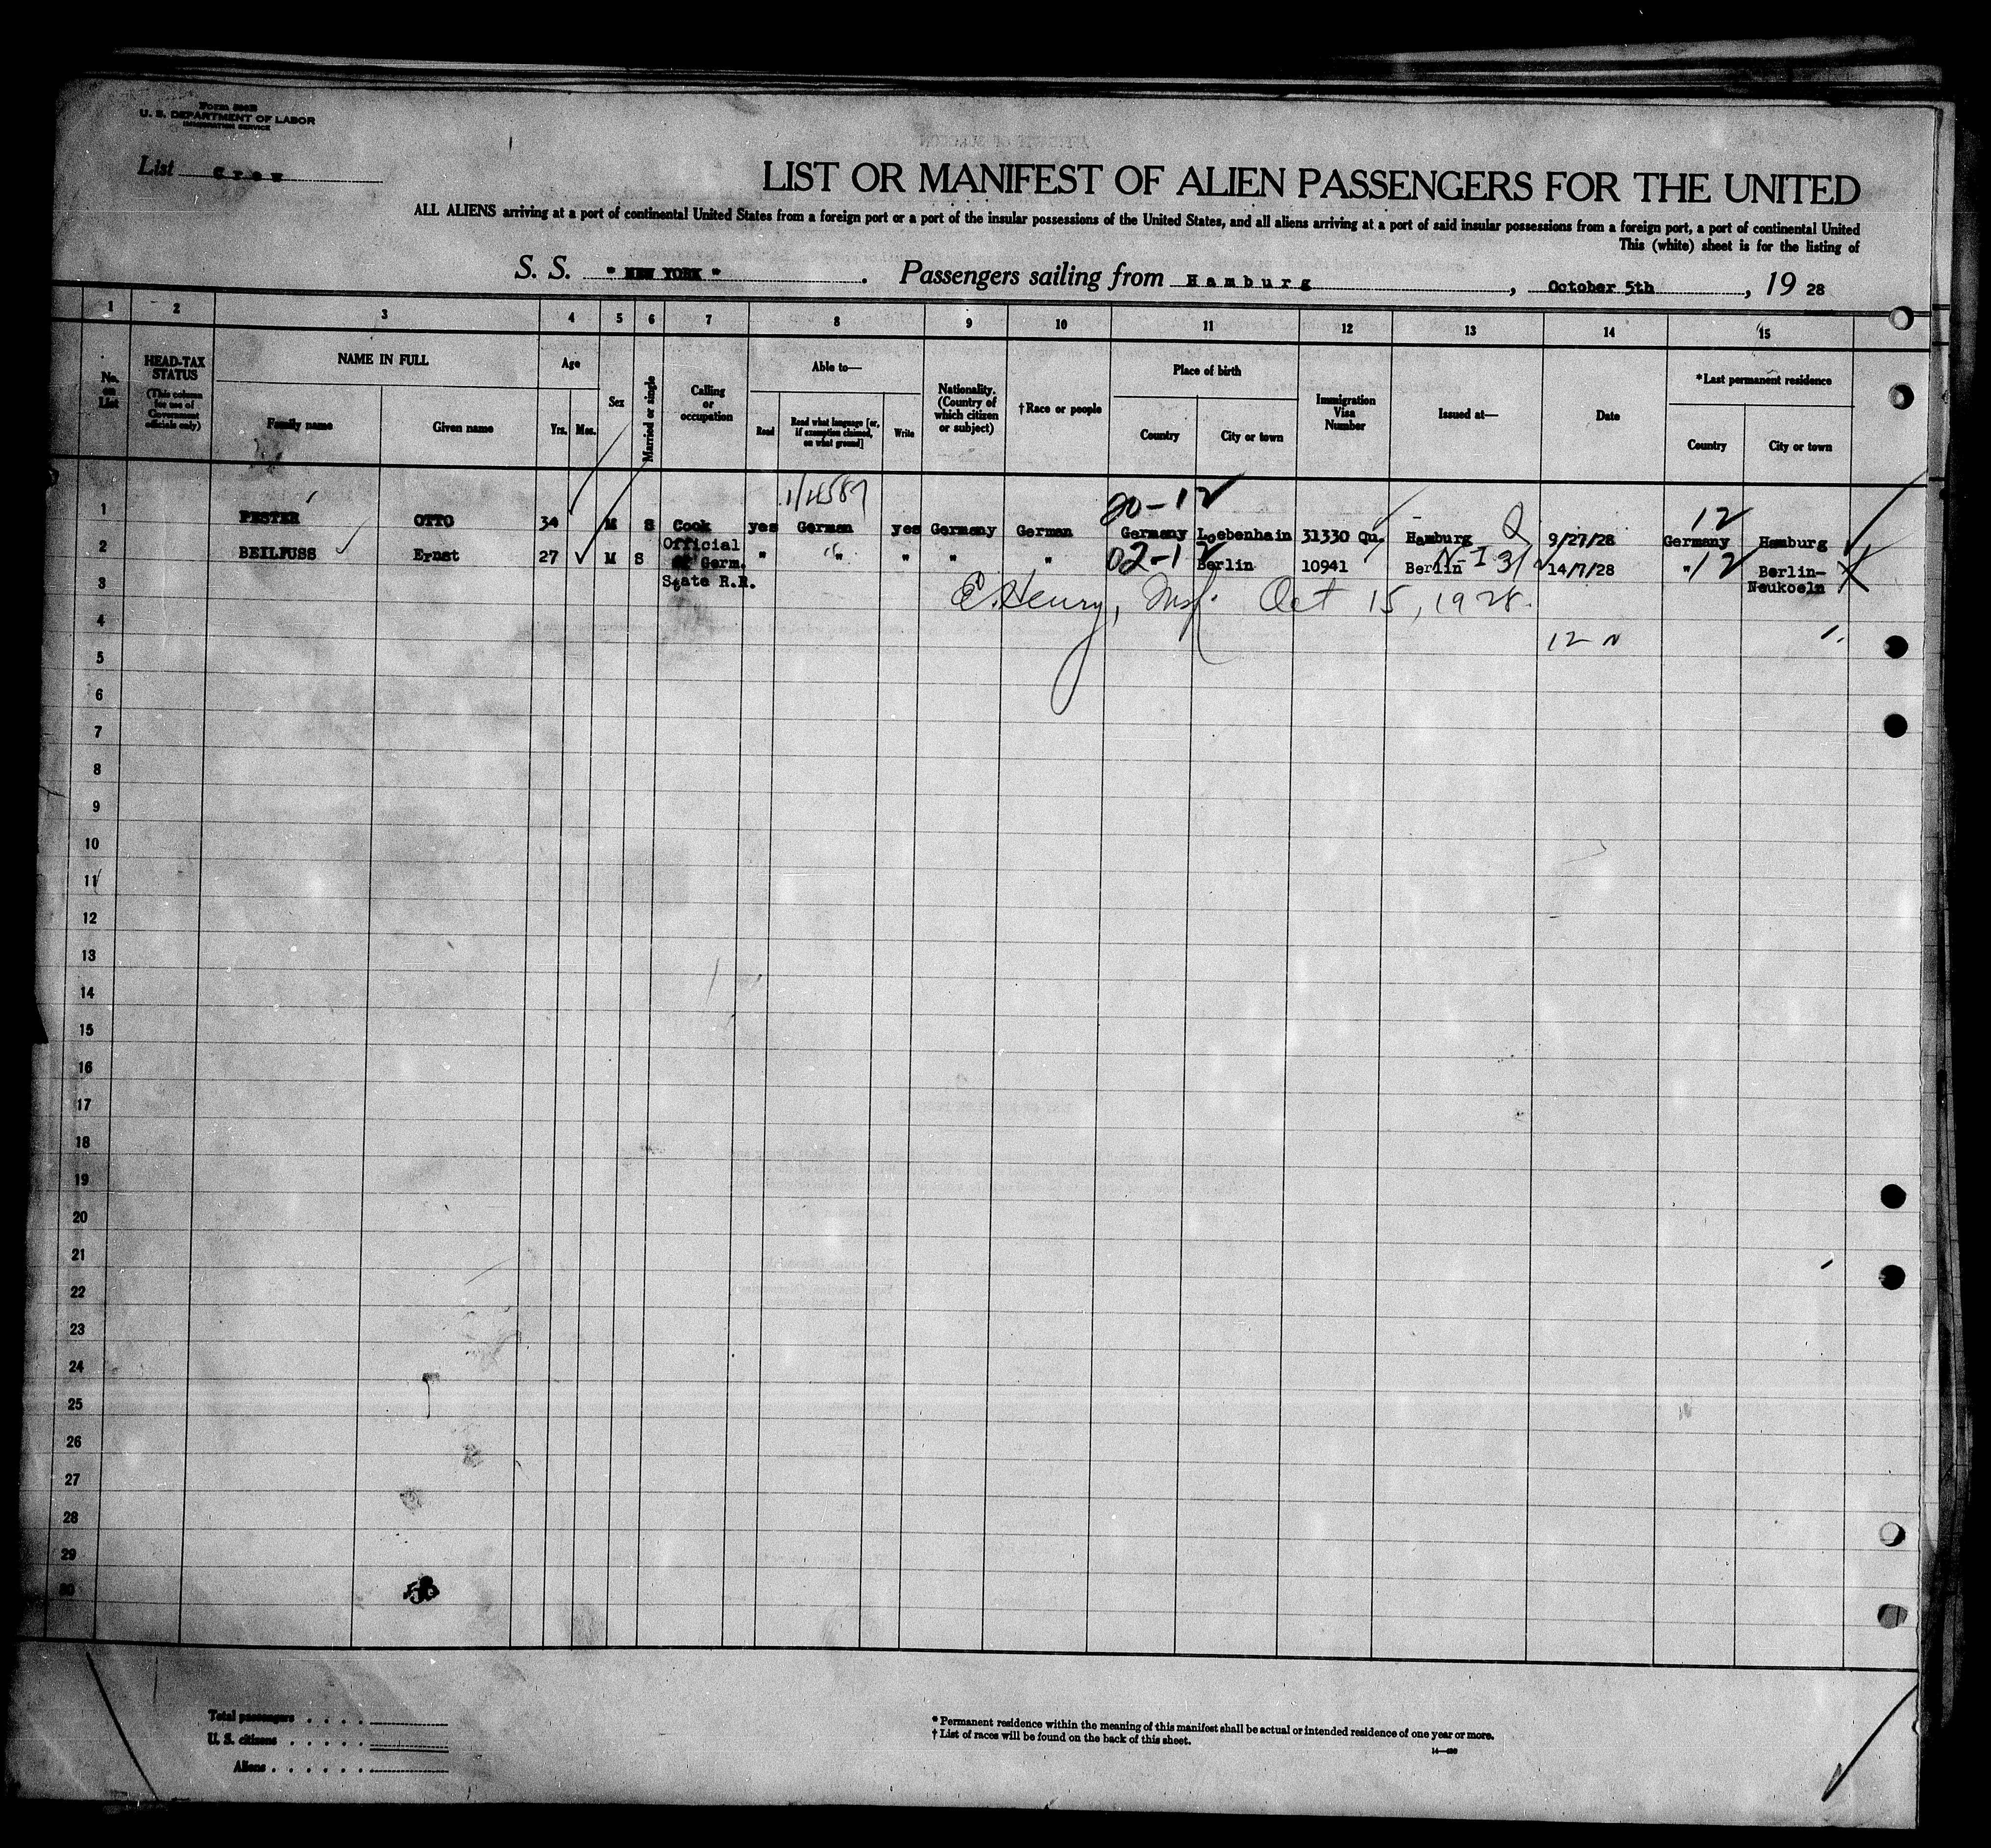 Form 500B
U. S. DEPARTMENT OF LABOR
IMMIGRATION SERVICE
List Crew
LIST OR MANIFEST OF ALIEN PASSENGERS FOR THE UNITED
ALL ALIENS arriving at a port of continental United States from a foreign port or a port of the insular possessions of the United States, and all aliens arriving at a port of said insular possessions from a foreign port, a port of continental United
This (white) sheet is for the listing of
S. S. " NEW YORK " . Passengers sailing from Hamburg , October 5th , 19 28
1 2 3 4 5 6 7 8 9 10 11 12 13 14 15
No. on List
HEAD-TAX STATUS (This column for use of Government officials only)
NAME IN FULL
Family name Given name
Age
Yrs. Mos.
Sex
Married or single
Calling or occupation
Able to—
Read Read what language [or, if exemption claimed, on what ground] Write
Nationality. (Country of which citizen or subject)
†Race or people
Place of birth
Country City or town
Immigration Visa Number
Issued at—
Date
*Last permanent residence
Country City or town
20-12 12
1 PESTER OTTO 34 M S Cook yes German yes Germany German Germany Loebenhain 31330 Qu. Hamburg Q 9/27/28 Germany Hamburg
2 BEILFUSS Ernst 27 M S Official of Germ. State R.R. " " " " " 02-12 Berlin 10941 Berlin 14/7/28 " 12 Berlin-Neukoeln
3 E. Henry, Insp. Oct 15, 1928.
4 12 N
5
6
7
8
9
10
11
12
13
14
15
16
17
18
19
20
21
22
23
24
25
26
27
28
29
30
Total passengers . . . .
U. S. citizens . . . . .
Aliens . . . . . .
* Permanent residence within the meaning of this manifest shall be actual or intended residence of one year or more.
† List of races will be found on the back of this sheet.